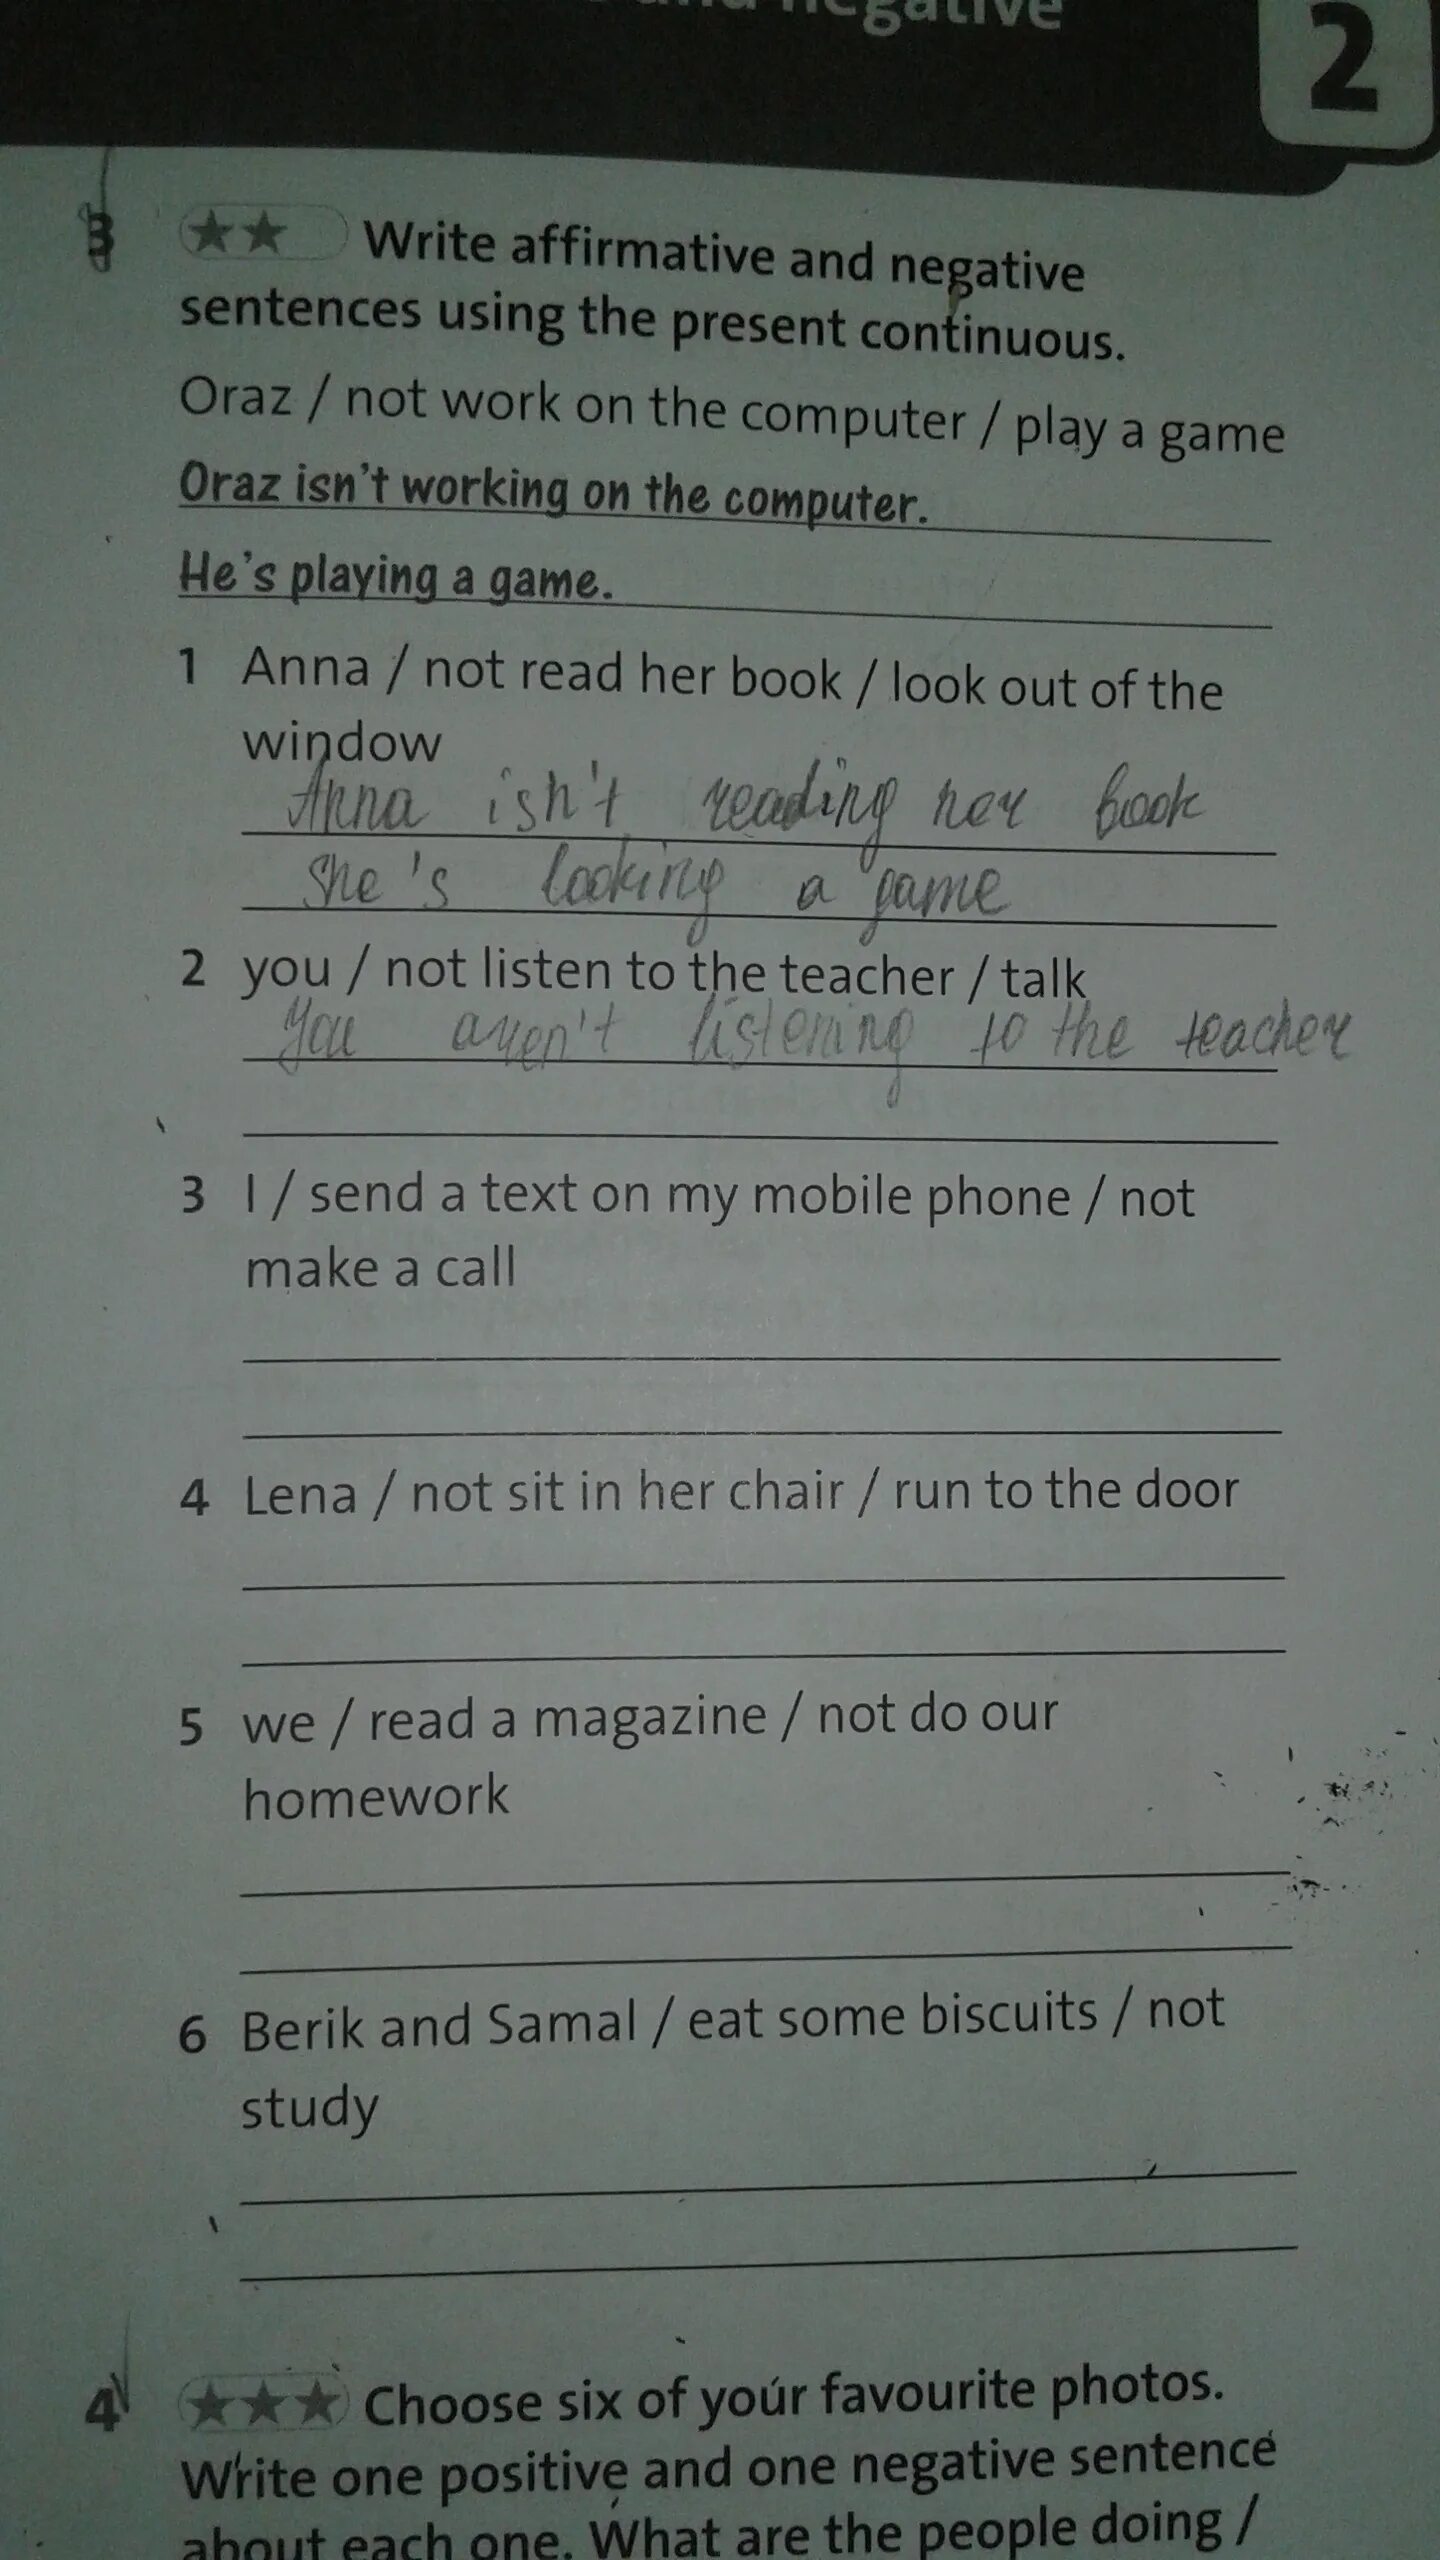 negative
2
3 ★★ Write affirmative and negative
sentences using the present continuous.
Oraz / not work on the computer / play a game
Oraz isn't working on the computer.
He's playing a game.
1 Anna / not read her book / look out of the
window
Anna isn't reading her book
She's looking a game
2 you / not listen to the teacher / talk
You aren't listening to the teacher
3 I / send a text on my mobile phone / not
make a call
4 Lena / not sit in her chair / run to the door
5 we / read a magazine / not do our
homework
6 Berik and Samal / eat some biscuits / not
study
4 ★★★ Choose six of your favourite photos.
Write one positive and one negative sentence
about each one. What are the people doing /